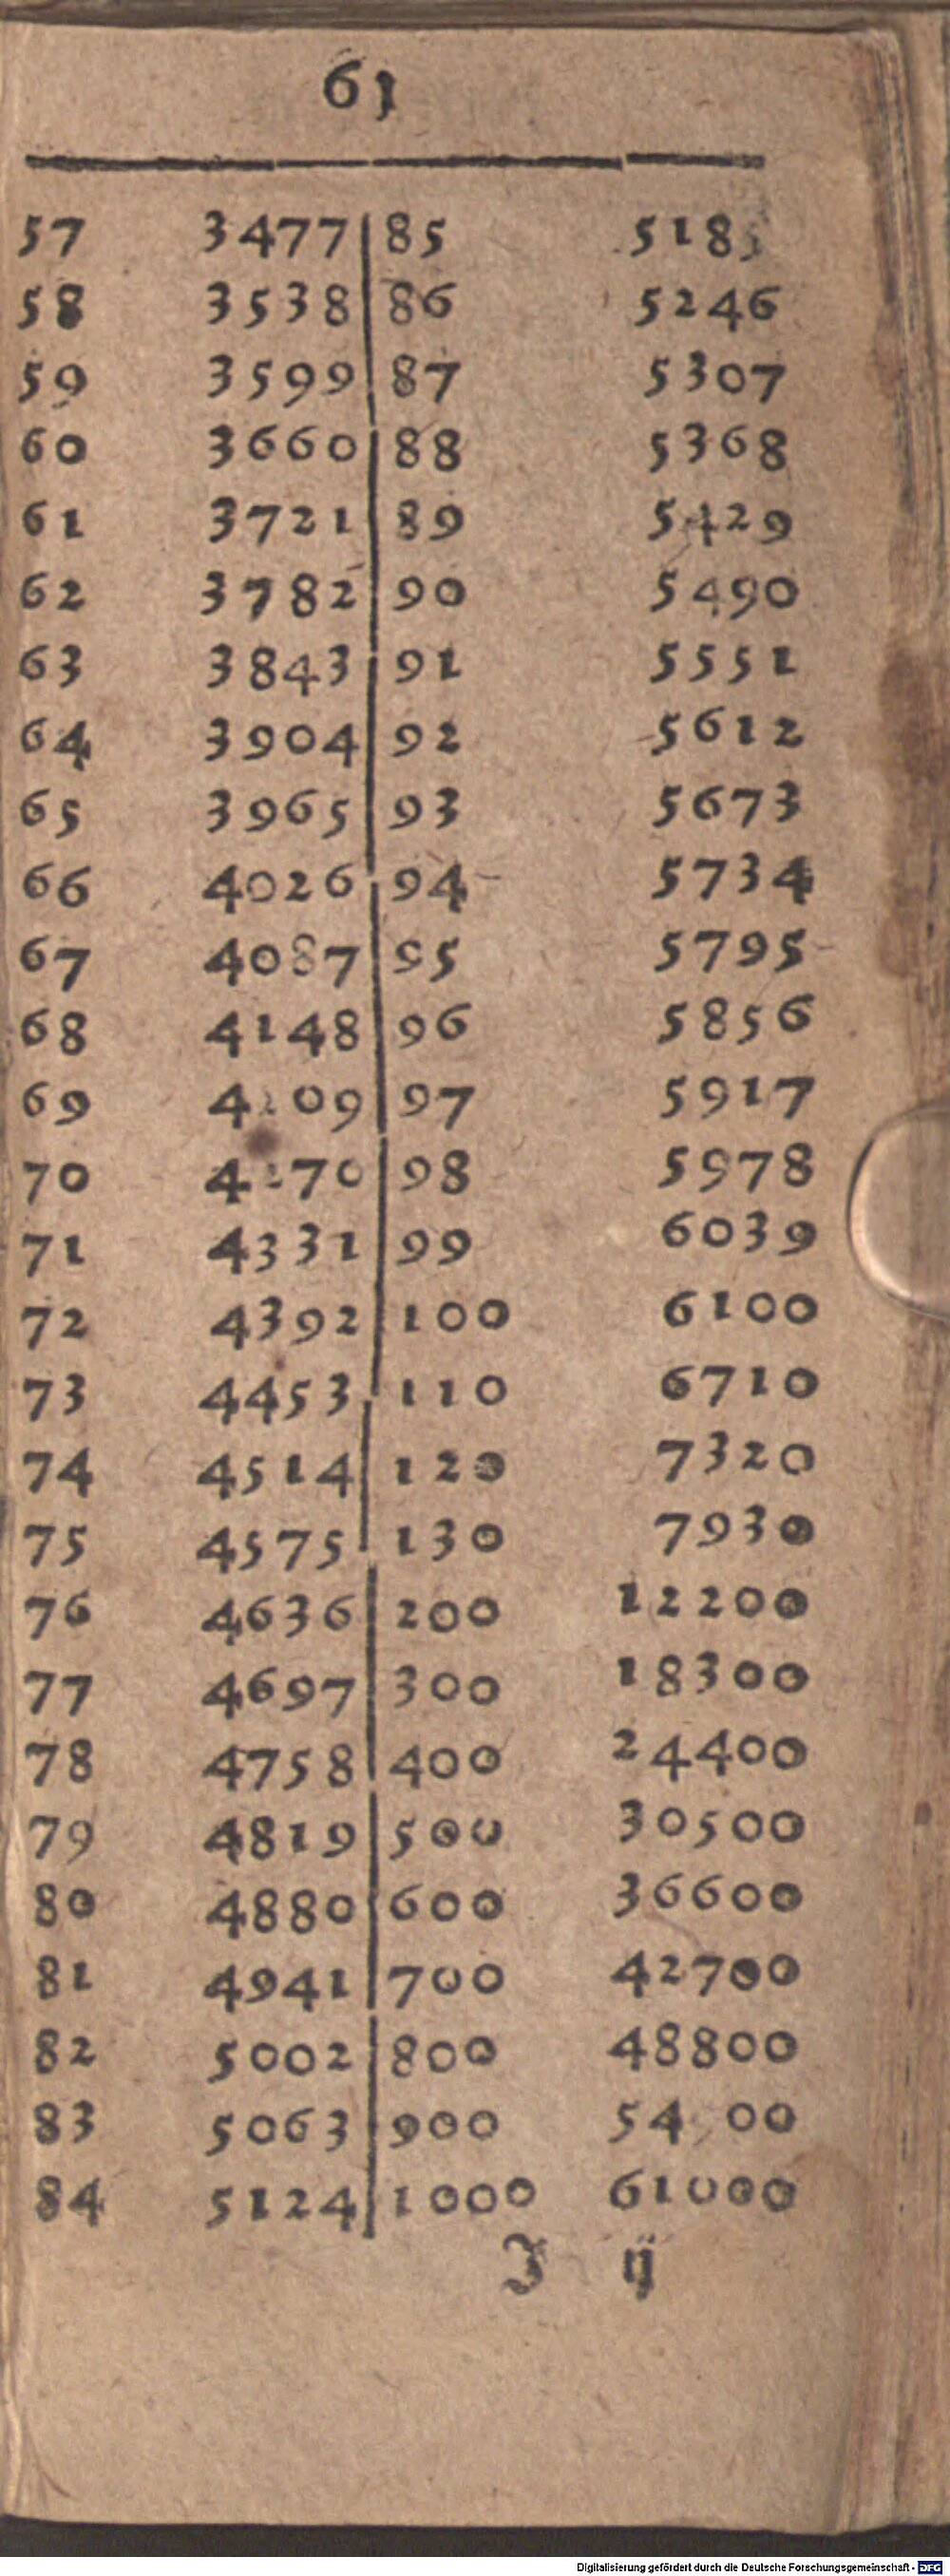 61
57 3477 85 5185
58 3538 86 5246
59 3599 87 5307
60 3660 88 5368
61 3721 89 5429
62 3782 90 5490
63 3843 91 5551
64 3904 92 5612
65 3965 93 5673
66 4026 94 5734
67 4087 95 5795
68 4148 96 5856
69 4209 97 5917
70 4270 98 5978
71 4331 99 6039
72 4392 100 6100
73 4453 110 6710
74 4514 120 7320
75 4575 130 7930
76 4636 200 12200
77 4697 300 18300
78 4758 400 24400
79 4819 500 30500
80 4880 600 36600
81 4941 700 42700
82 5002 800 48800
83 5063 900 54 00
84 5124 1000 61000
J ij
Digitalisierung gefördert durch die Deutsche Forschungsgemeinschaft - DFG